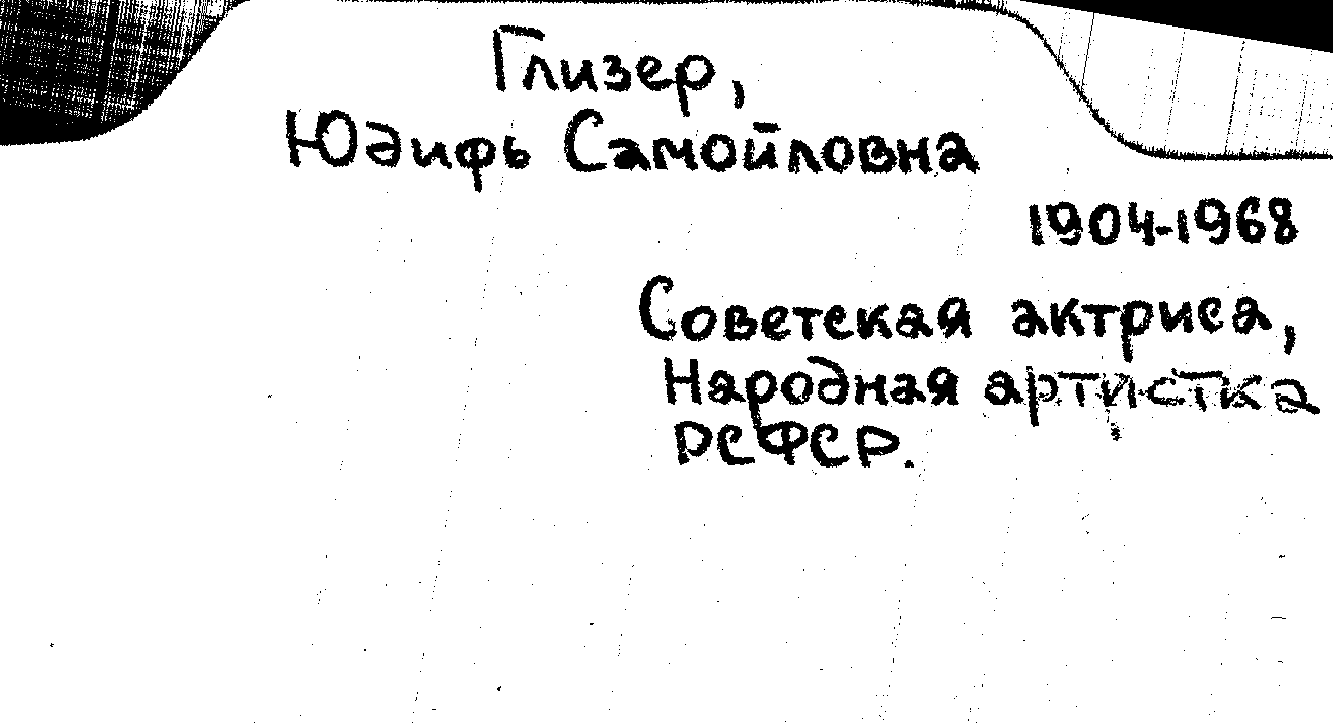 Глизер,
Юдифь Самойловна
1904-1968
Советская актриса,
Народная артистка
РСФСР.